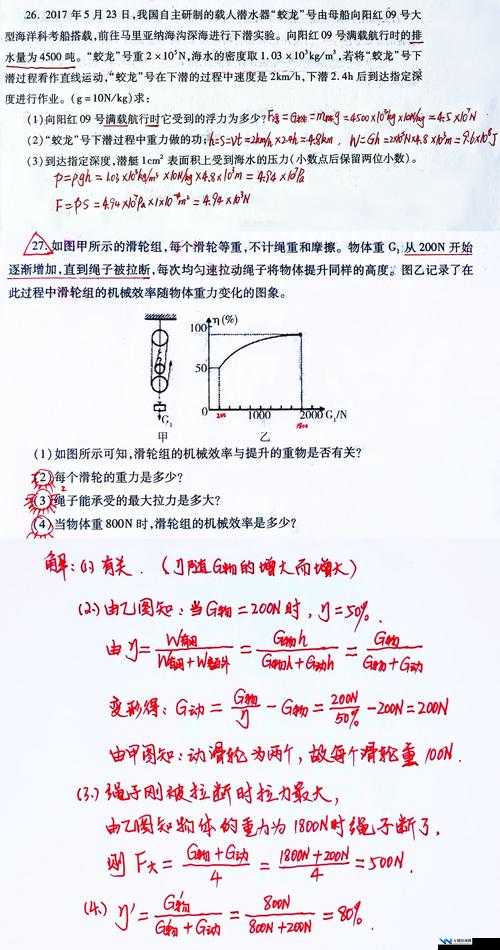 26. 2017年5月23日,我国自主研制的载人潜水器“蛟龙”号由母船向阳红09号大
型海洋科考船搭载,前往马里亚纳海沟深海进行下潜实验。向阳红09号满载航行时的排
水量为4500吨。“蛟龙”号重2×10⁵N,海水的密度取1.03×10³kg/m³,若将“蛟龙”号下
潜过程看作直线运动,“蛟龙”号在下潜的过程中速度是2km/h,下潜2.4h后到达指定深
度进行作业。(g=10N/kg)求:
(1)向阳红09号满载航行时它受到的浮力为多少? F浮=G排=m排g=4500×10³kg×10N/kg=4.5×10⁷N
(2)“蛟龙”号下潜过程中重力做的功; h=S=vt=2km/h×2.4h=4.8km, W=Gh=2×10⁵N×4.8×10³m=9.6×10⁸J
(3)到达指定深度,潜艇1cm²表面积上受到海水的压力(小数点后保留两位小数)。
p=ρgh=1.03×10³kg/m³×10N/kg×4.8×10³m=4.94×10⁷Pa
F=pS=4.94×10⁷Pa×1×10⁻⁴m²=4.94×10³N
27. 如图甲所示的滑轮组,每个滑轮等重,不计绳重和摩擦。物体重G₁从200N开始
逐渐增加,直到绳子被拉断,每次均匀速拉动绳子将物体提升同样的高度。图乙记录了在
此过程中滑轮组的机械效率随物体重力变化的图象。
η(%)
100
50
0 200 1000 1800 2000 G₁/N
G₁
甲 乙
(1)如图所示可知,滑轮组的机械效率与提升的重物是否有关?
(2)每个滑轮的重力是多少?
(3)绳子能承受的最大拉力是多大?
(4)当物体重800N时,滑轮组的机械效率是多少?
解:(1)有关.(η随G物的增大而增大)
(2)由乙图知:当G物=200N时,η=50%.
由η=W有用/(W有用+W额外)=G物h/(G物h+G动h)=G物/(G物+G动)
变形得:G动=G物/η-G物=200N/50%-200N=200N
由甲图知:动滑轮为两个,故每个滑轮重100N.
(3)绳子刚被拉断时拉力最大,
由乙图知物体的重力为1800N时绳子断了,
则F大=(G物+G动)/4=(1800N+200N)/4=500N.
(4)η′=G′物/(G′物+G动)=800N/(800N+200N)=80%.